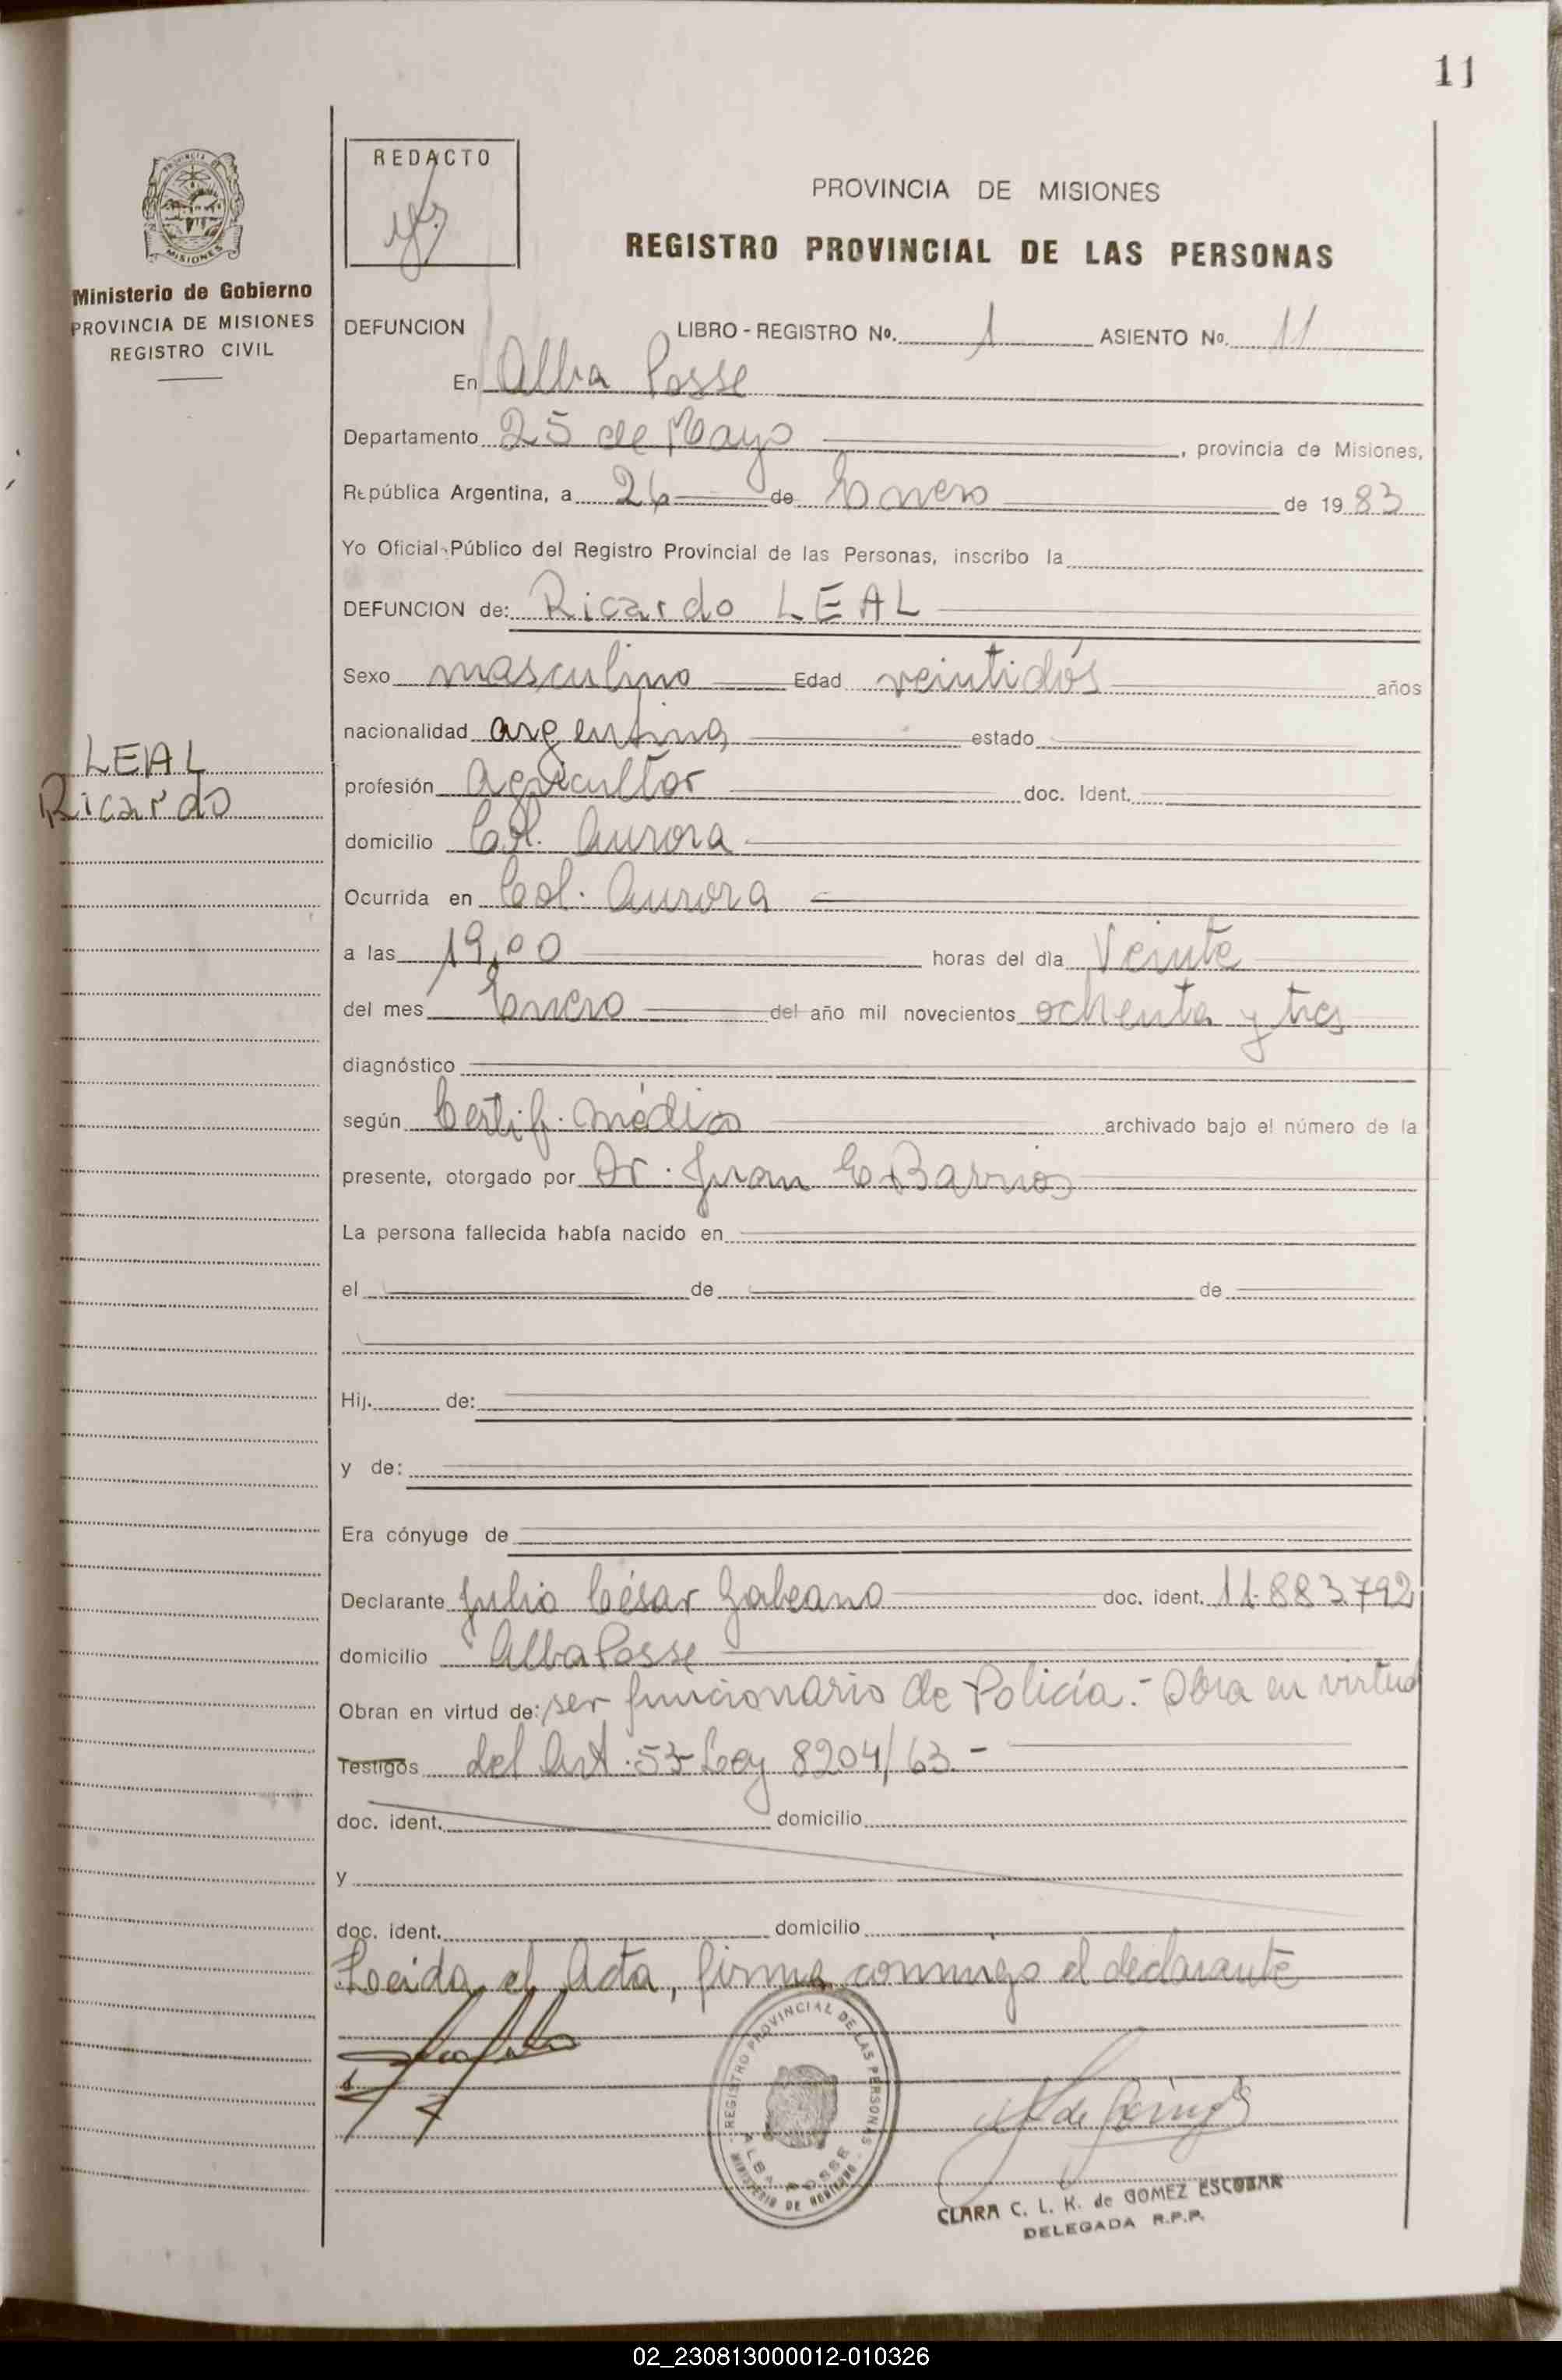 11
REDACTO
PROVINCIA DE MISIONES
REGISTRO PROVINCIAL DE LAS PERSONAS
PROVINCIA DE
MISIONES
Ministerio de Gobierno
PROVINCIA DE MISIONES
REGISTRO CIVIL
DEFUNCION LIBRO - REGISTRO Nº. 1 ASIENTO Nº. 11
En Alba Posse
Departamento 25 de Mayo, provincia de Misiones,
República Argentina, a 26 de Enero de 1983
Yo Oficial Público del Registro Provincial de las Personas, inscribo la
DEFUNCION de: Ricardo LEAL
Sexo masculino Edad veintidós años
nacionalidad argentina estado
LEAL
Ricardo
profesión Agricultor doc. Ident.
domicilio Col. Aurora
Ocurrida en Col. Aurora
a las 19,00 horas del día Veinte
del mes Enero del año mil novecientos ochenta y tres
diagnóstico
según Certif. médico archivado bajo el número de la
presente, otorgado por Dr. Juan E. Barrios
La persona fallecida había nacido en
el de de
Hij. de:
y de:
Era cónyuge de
Declarante Julio César Galeano doc. ident. 11.883.792
domicilio Alba Posse
Obran en virtud de: ser funcionario de Policía.- Obra en virtud
Testigos del Art. 53 Ley 8204/63.-
doc. ident. domicilio
y
doc. ident. domicilio
Leída el Acta, firma conmigo el declarante
REGISTRO PROVINCIAL DE LAS PERSONAS
ALBA POSSE
MINISTERIO DE GOBIERNO
CLARA C. L. K. de GOMEZ ESCOBAR
DELEGADA R.P.P.
02_230813000012-010326